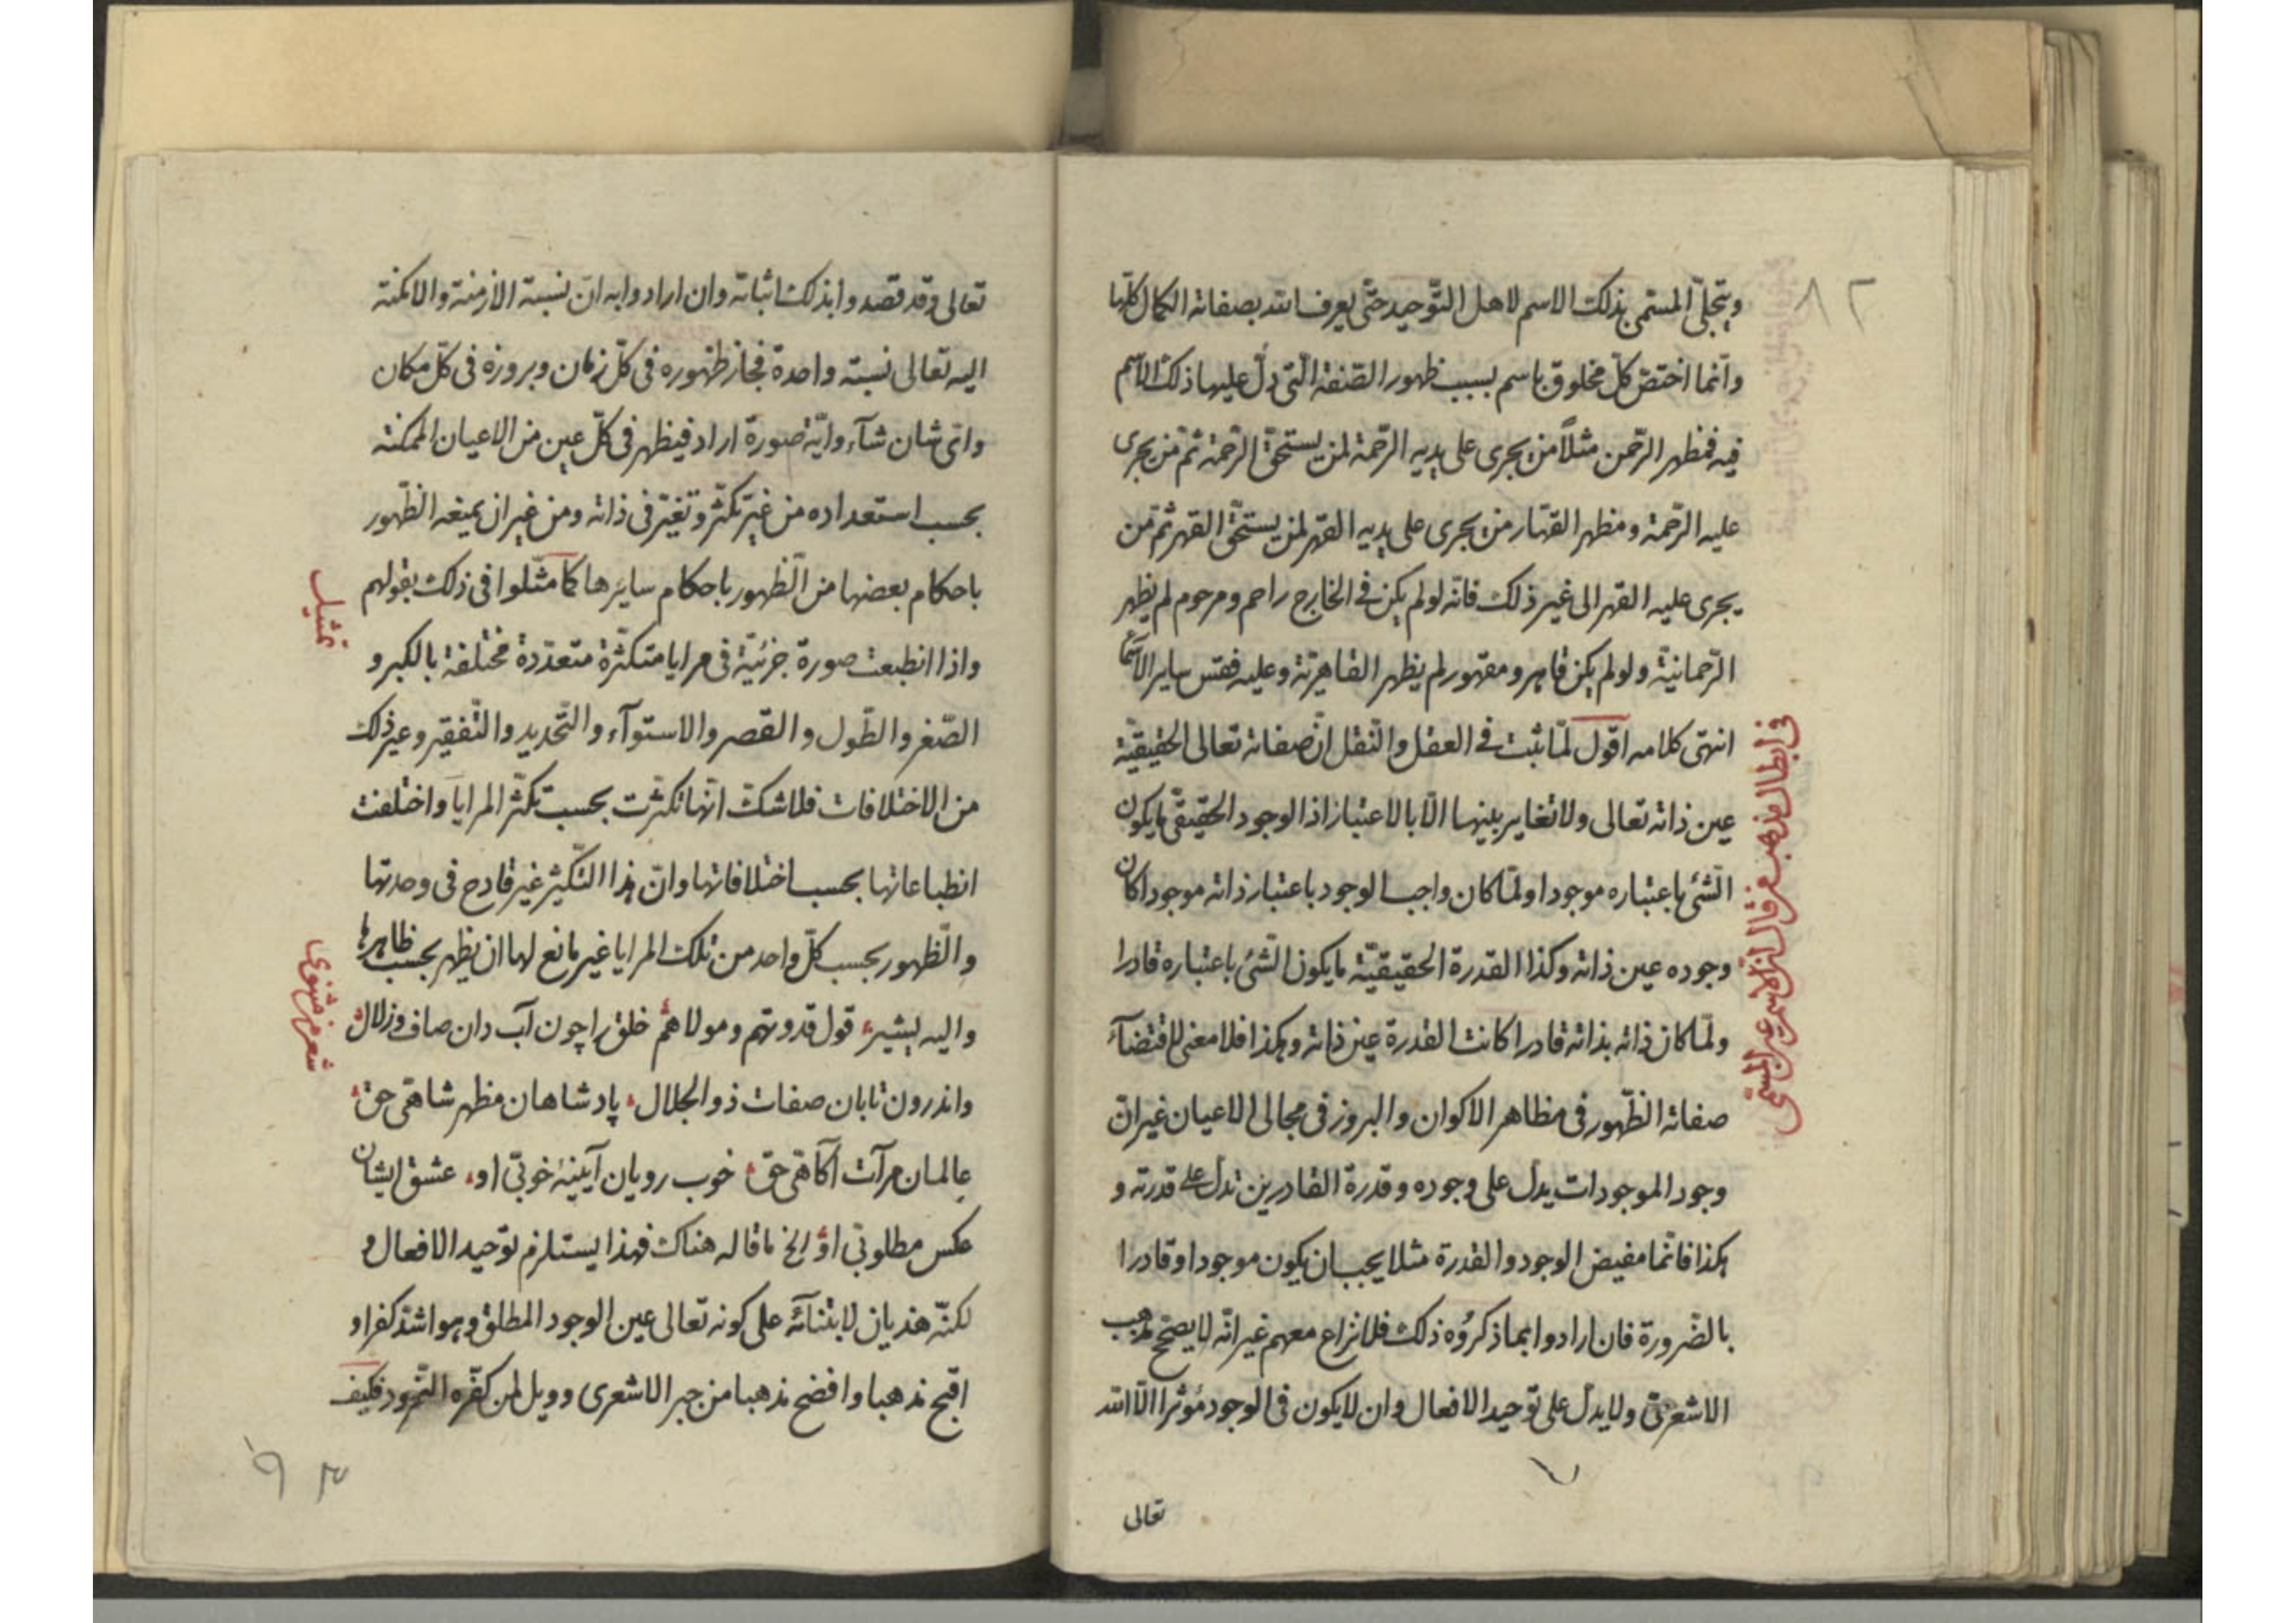 ٨٢
ويتجلّى المسمّى بذلك الاسم لاهل التّوحيد حتّى يعرف الله بصفاته الكمال كلّها
وانّما اختصّ كلّ مخلوق باسم بسبب ظهور الصّفة الّتى دلّ عليها ذلك الاسم
فيه فمظهر الرّحمن مثلاً من يجرى على يديه الرّحمة لمن يستحقّ الرّحمة ثمّ من يجرى
عليه الرّحمة ومظهر القهّار من يجرى على يديه القهر لمن يستحقّ القهر ثمّ من
يجرى عليه القهر الى غير ذلك فانّه لو لم يكن فى الخارج راحم ومرحوم لم يظهر
الرّحمانيّة ولو لم يكن قاهر ومقهور لم يظهر القاهريّة وعليه فقس ساير الاسمآ
انتهى كلامه اقول لمّا ثبت فى العقل والنّقل انّ صفاته تعالى الحقيقيّة
عين ذاته تعالى ولا تغاير بينها الّا بالاعتبار اذ الوجود الحقيقى ما يكون
الشّئ باعتباره موجودا ولمّا كان واجب الوجود باعتبار ذاته موجودا كان
وجوده عين ذاته وكذا القدرة الحقيقيّة ما يكون الشّئ باعتباره قادرا
ولمّا كان ذاته بذاته قادرا كانت القدرة عين ذاته وهكذا فلا معنى لاقتضآء
صفاته الظّهور فى مظاهر الاكوان والبروز فى مجالى الاعيان غير انّ
وجود الموجودات يدلّ على وجوده وقدرة القادرين تدلّ على قدرته و
هكذا فانّما مفيض الوجود والقدرة مثلا يجب ان يكون موجودا وقادرا
بالضّرورة فان ارادوا بما ذكروُه ذلك فلا نزاع معهم غير انّه لا يصحّح مذهب
الاشعرىّ ولا يدلّ على توحيد الافعال وان لا يكون فى الوجود مؤثرا الّا الله
تعالى
فى ابطال مذهب من قال انّ الاسم عين المسمّى
تعالى وقد قصدوا بذلك اثباته وان ارادوا به انّ نسبة الازمنة والامكنة
اليه تعالى نسبة واحدة فجاز ظهوره فى كلّ زمان وبروزه فى كلّ مكان
واىّ شان شآء وايّة صورة اراد فيظهر فى كلّ عين من الاعيان الممكنة
بحسب استعداده من غير تكثّر وتغيّر فى ذاته ومن غير ان يمنعه الظّهور
باحكام بعضها من الظّهور باحكام سايرها كما مثّلوا فى ذلك بقولهم
واذا انطبعت صورة جزئيّة فى مرايا متكثّرة متعدّدة مختلفة بالكبر و
الصّغر والطّول والقصر والاستوآء والتّحديد والتّقعير وغير ذلك
من الاختلافات فلا شكّ انّها تكثرت بحسب تكثّر المرايا واختلفت
انطباعاتها بحسب اختلافاتها وانّ هذا التّكثير غير قادح فى وحدتها
والظّهور بحسب كلّ واحد من تلك المرايا غير مانع لها ان يظهر بحسب ظاهرها
واليه يشير قول قدوتهم ومولاهم خلق را چون آب دان صاف وزلال
واندرون تابان صفات ذو الجلال پادشاهان مظهر شاهى حق
عالمان مرآت آگاهى حق خوب رويان آيينۀ خوبى او عشق ايشان
عكس مطلوبى او الخ ما قاله هناك فهذا يستلزم توحيد الافعال و
لكنّه هذيان لابتنائه على كونه تعالى عين الوجود المطلق وهو اشدّ كفرا و
اقبح مذهبا وافضح مذهبا من جبر الاشعرى وويل لمن كفّره النّمرود فكيف
تمثيل
شعر مثنوى